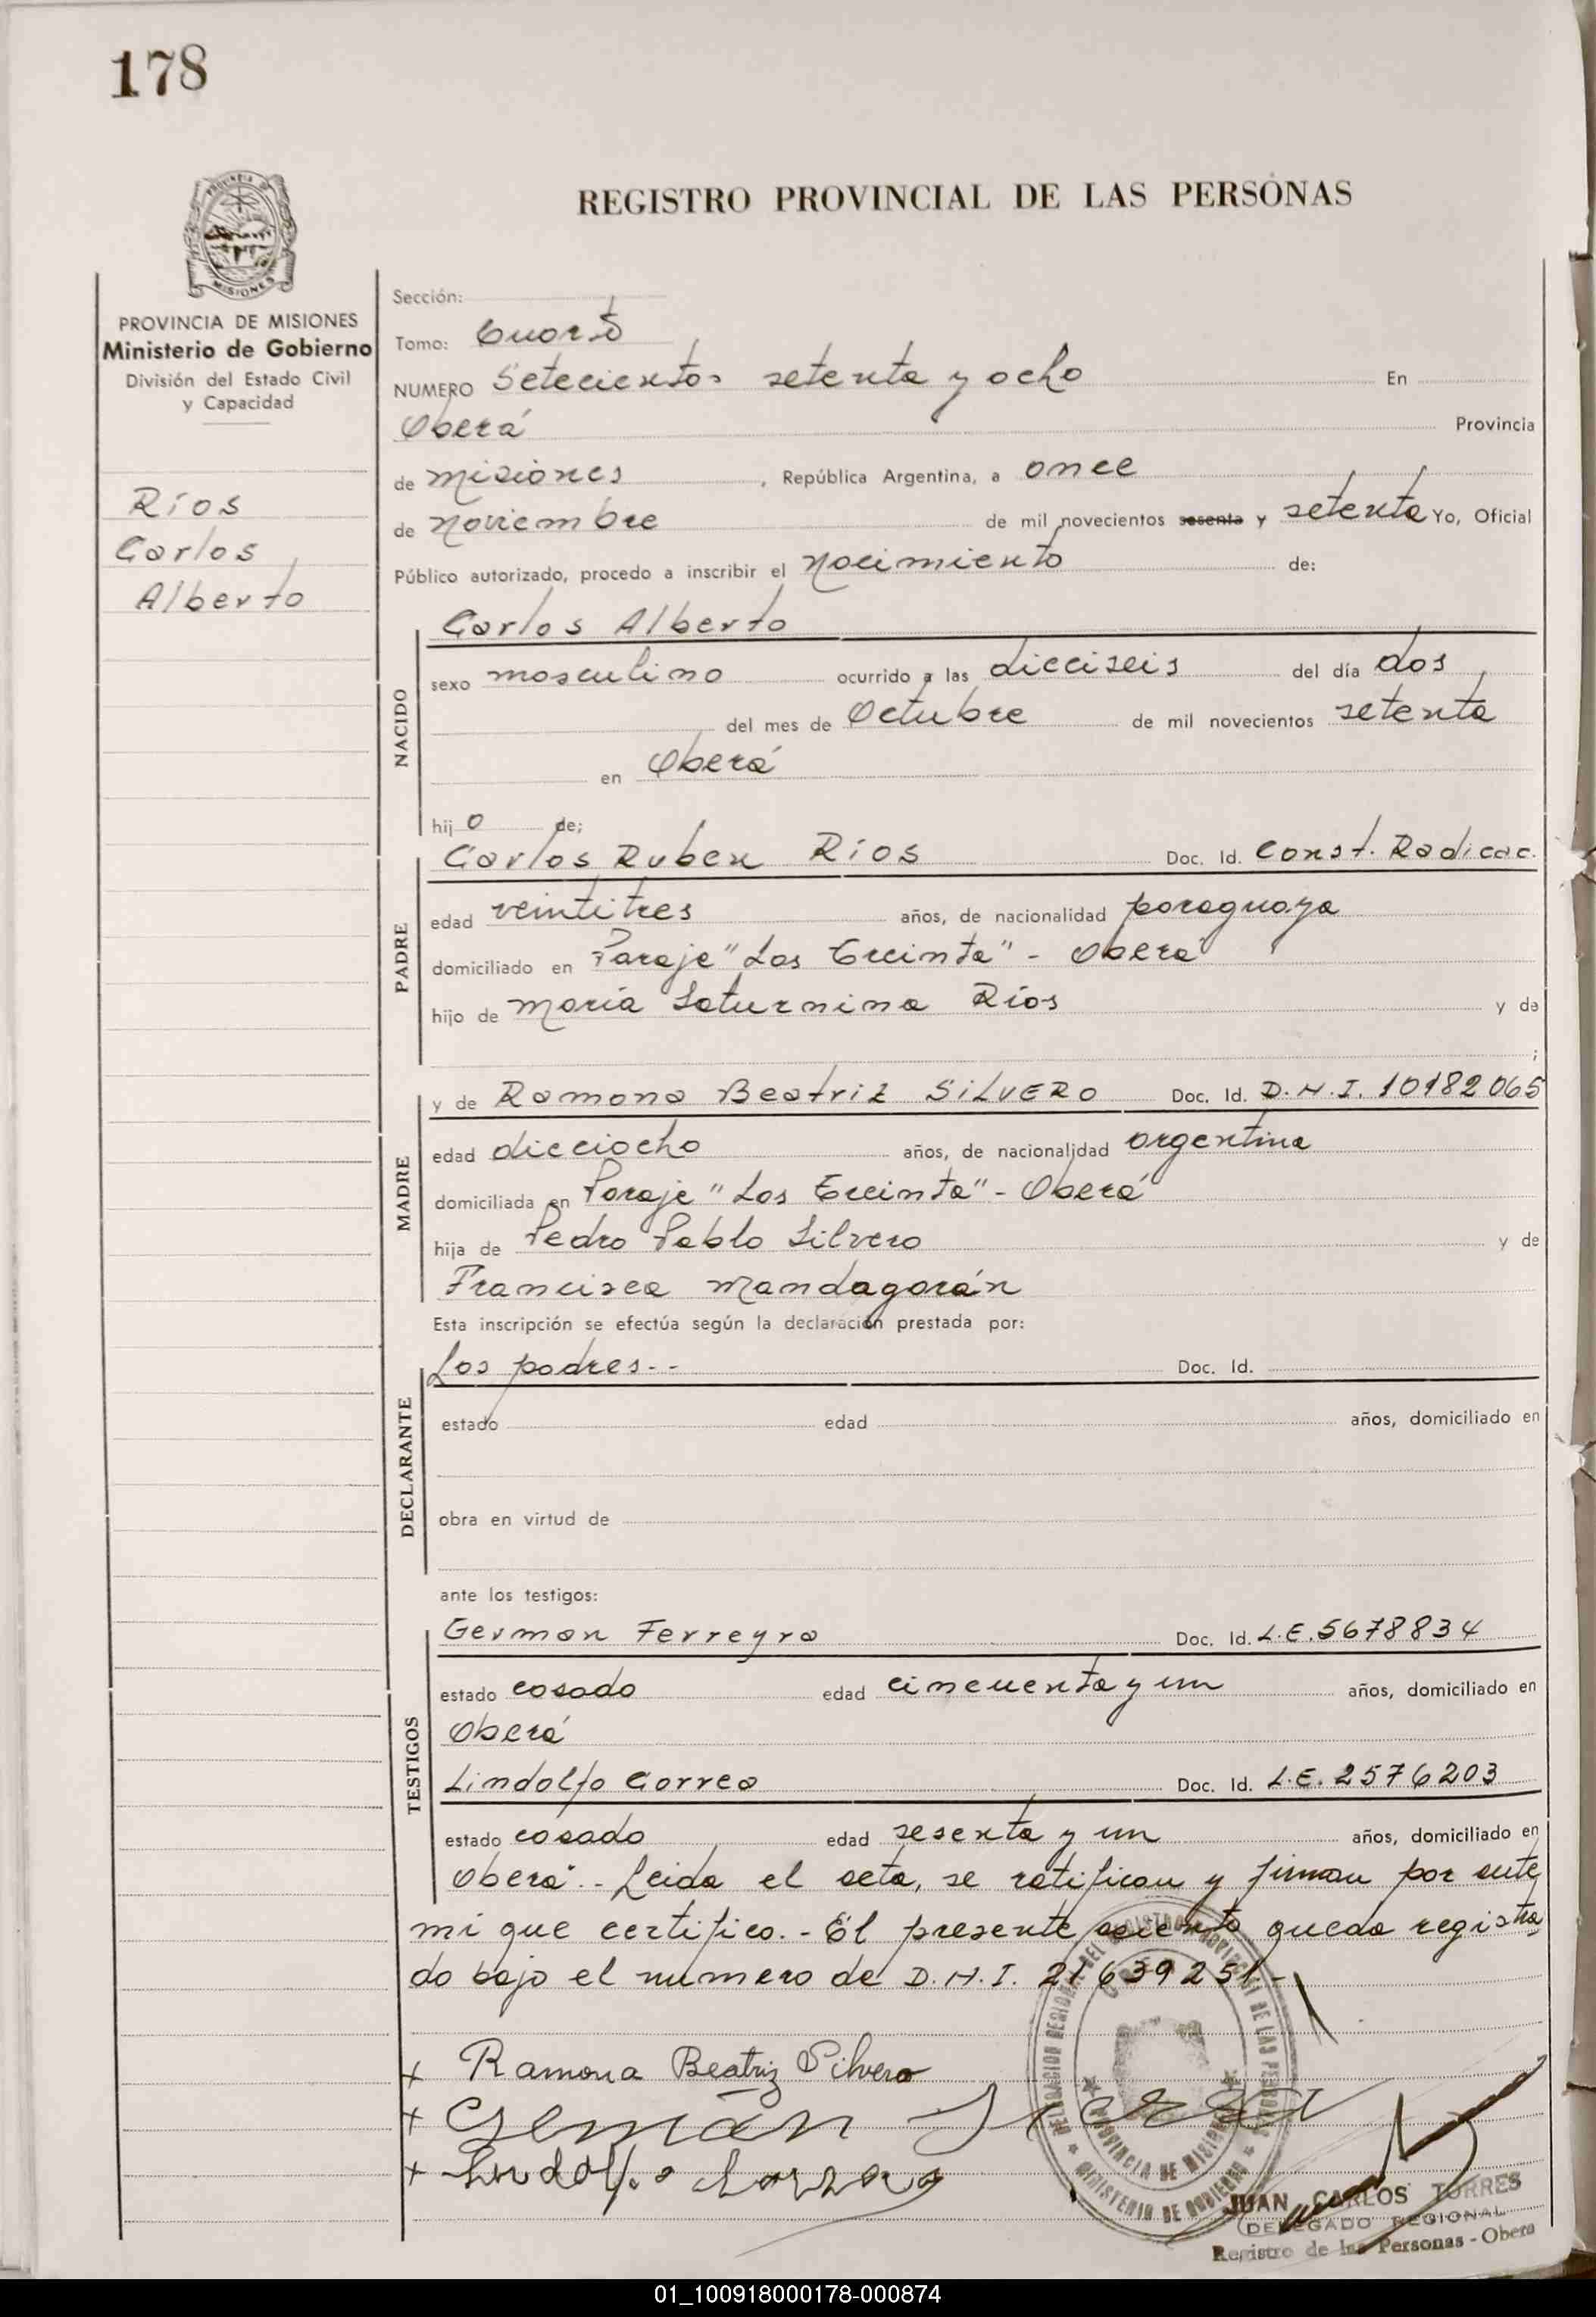 178
PROVINCIA DE MISIONES
REGISTRO PROVINCIAL DE LAS PERSONAS
PROVINCIA DE MISIONES
Ministerio de Gobierno
División del Estado Civil
y Capacidad
Ríos
Carlos
Alberto
Sección:
Tomo: Cuarto
NUMERO Setecientos setenta y ocho En
Oberá Provincia
de misiones, República Argentina, a once
de noviembre de mil novecientos sesenta y setenta Yo, Oficial
Público autorizado, procedo a inscribir el nacimiento de:
NACIDO
Carlos Alberto
sexo masculino ocurrido a las dieciseis del día dos
del mes de Octubre de mil novecientos setenta
en Oberá
hijo de;
PADRE
Carlos Ruben Ríos Doc. Id. Const. Radicac.
edad veintitres años, de nacionalidad paraguaya
domiciliado en Paraje "Los Treinta" - Oberá
hijo de María Saturnina Ríos y de
;
MADRE
y de Ramona Beatriz SILVERO Doc. Id. D.N.I. 10182065
edad dieciocho años, de nacionalidad argentina
domiciliada en Paraje "Los Treinta" - Oberá
hija de Pedro Pablo Silvero y de
Francisca Mandagarán
Esta inscripción se efectúa según la declaración prestada por:
DECLARANTE
Los padres.-- Doc. Id.
estado edad años, domiciliado en
obra en virtud de
ante los testigos:
TESTIGOS
German Ferreyra Doc. Id. L.E. 5678834
estado casado edad cincuenta y un años, domiciliado en
Oberá
Lindolfo Correa Doc. Id. L.E. 2576203
estado casado edad sesenta y un años, domiciliado en
Oberá.- Leida el acta, se ratifican y firman por ante
mi que certifico.- El presente asiento queda registra
do bajo el numero de D.N.I. 21639251.-
+ Ramona Beatriz Silvero
+ Germán
+ Lindolfo
DELEGACION REGIONAL DEL REGISTRO PROVINCIAL DE LAS PERSONAS
PROVINCIA DE MISIONES
MINISTERIO DE GOBIERNO
JUAN CARLOS TORRES
DELEGADO REGIONAL
Registro de las Personas - Obera
01_100918000178-000874